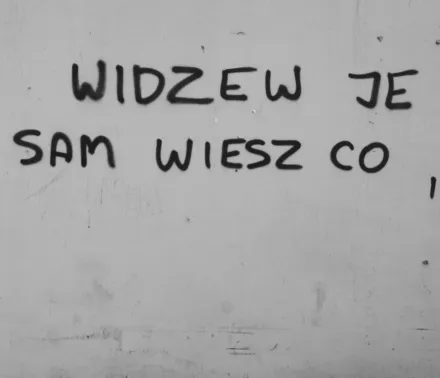 WIDZEW JE
SAM WIESZ CO